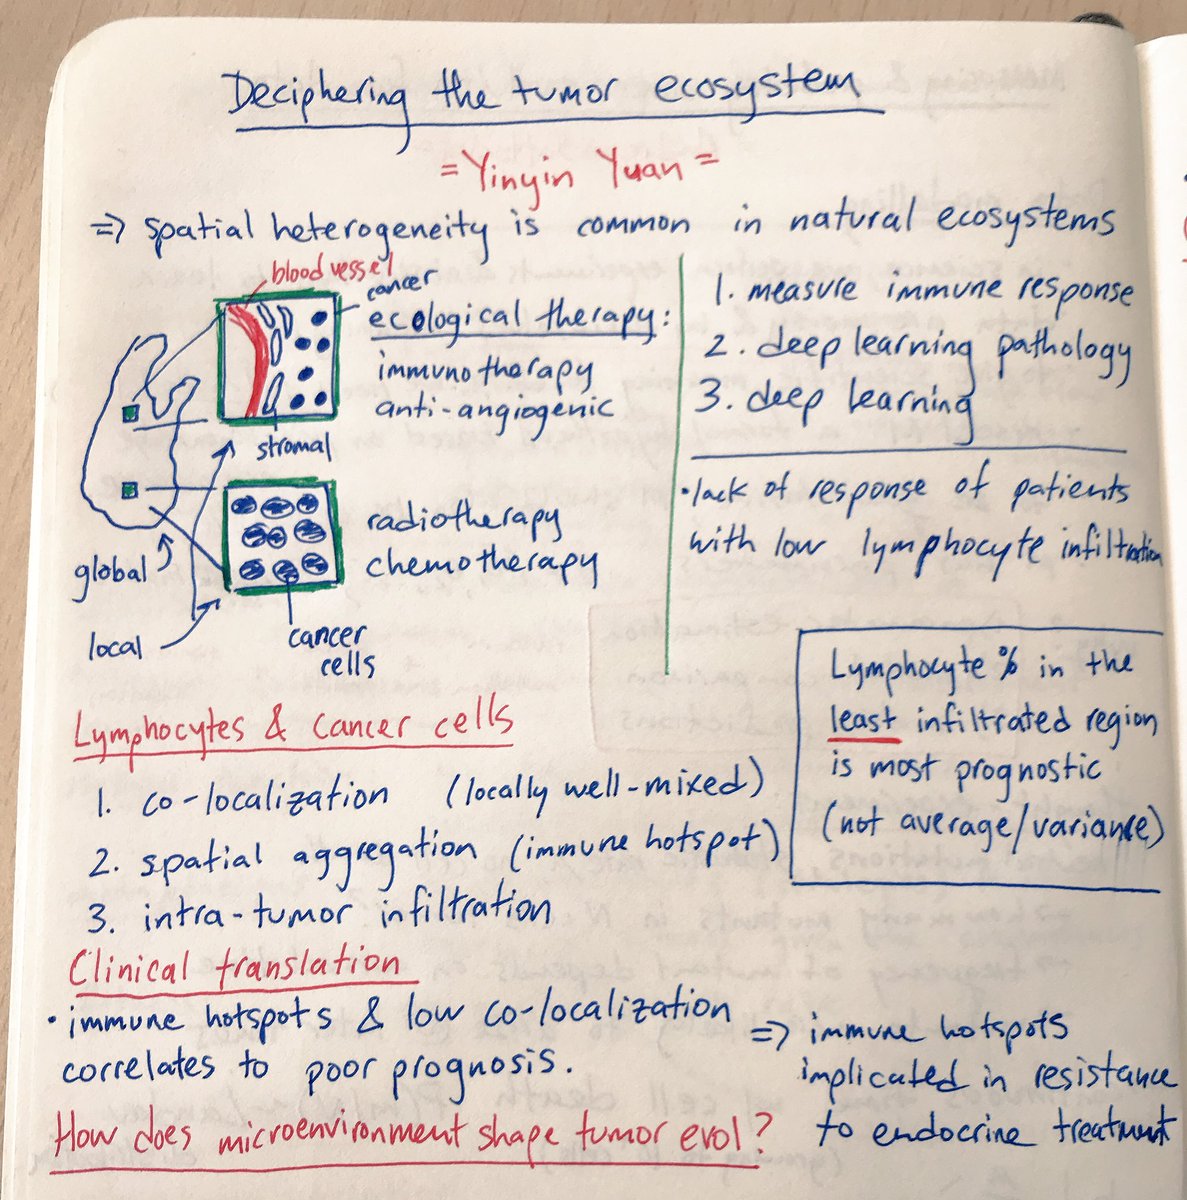 Deciphering the tumor ecosystem
= Yinyin Yuan =
=> spatial heterogeneity is common in natural ecosystems
blood vessel
cancer
ecological therapy:
immunotherapy
anti-angiogenic
stromal
radiotherapy
chemotherapy
global
local
cancer
cells
1. measure immune response
2. deep learning pathology
3. deep learning
• lack of response of patients
with low lymphocyte infiltration
Lymphocyte % in the
least infiltrated region
is most prognostic
(not average/variance)
Lymphocytes & cancer cells
1. co-localization (locally well-mixed)
2. spatial aggregation (immune hotspot)
3. intra-tumor infiltration
Clinical translation
• immune hotspots & low co-localization
correlates to poor prognosis.
=> immune hotspots
implicated in resistance
to endocrine treatment
How does microenvironment shape tumor evol?